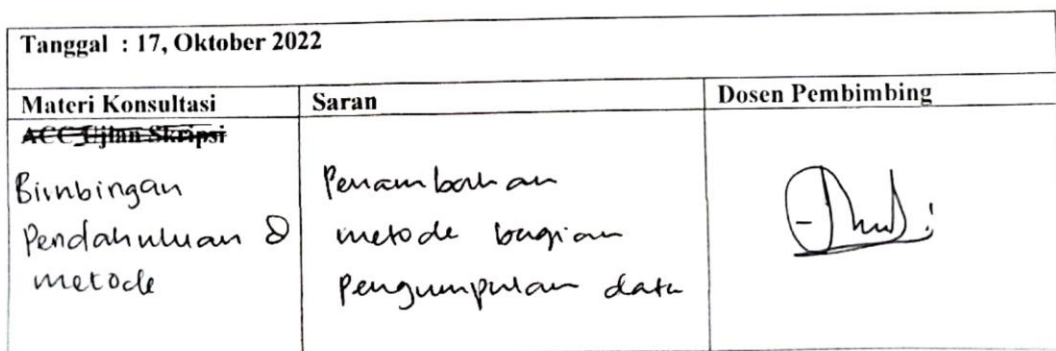 Tanggal : 17, Oktober 2022
Materi Konsultasi Saran Dosen Pembimbing
ACC Ujian Skripsi
Bimbingan Penambahan
Pendahuluan & metode bagian
metode pengumpulan data